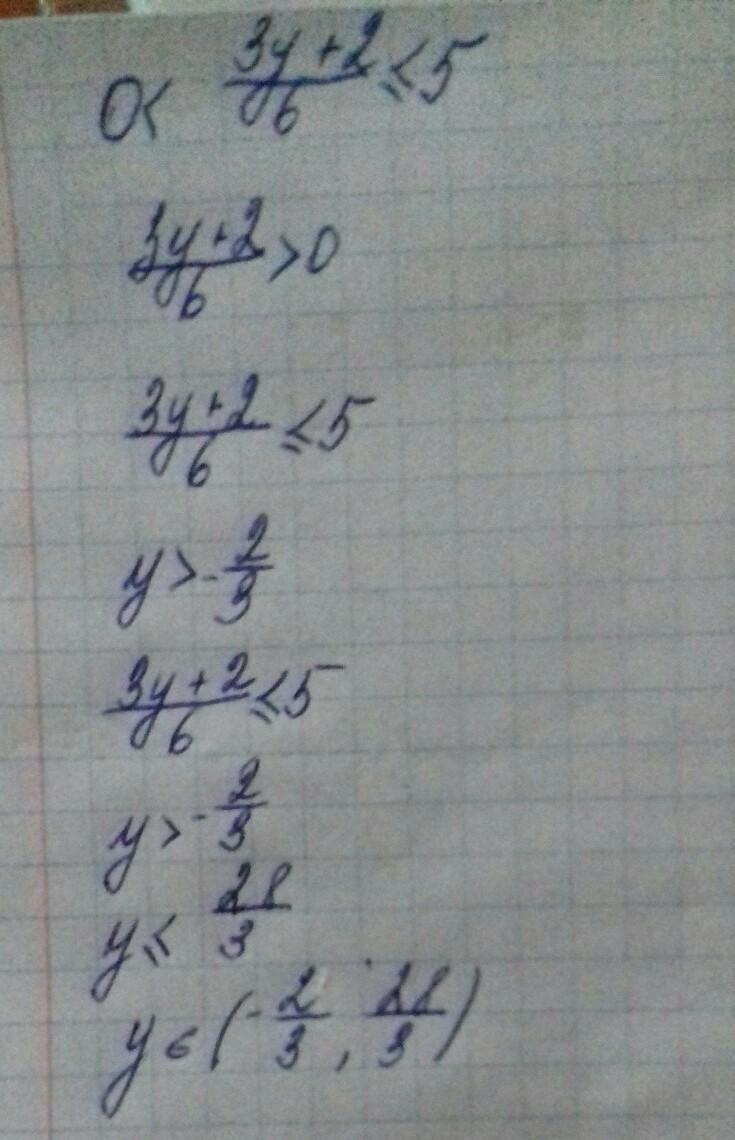 0< (3y+2)/6 ≤5
(3y+2)/6 >0
(3y+2)/6 ≤5
y>-2/3
(3y+2)/6 ≤5
y>-2/3
y≤ 28/3
y∈(-2/3, 28/3)